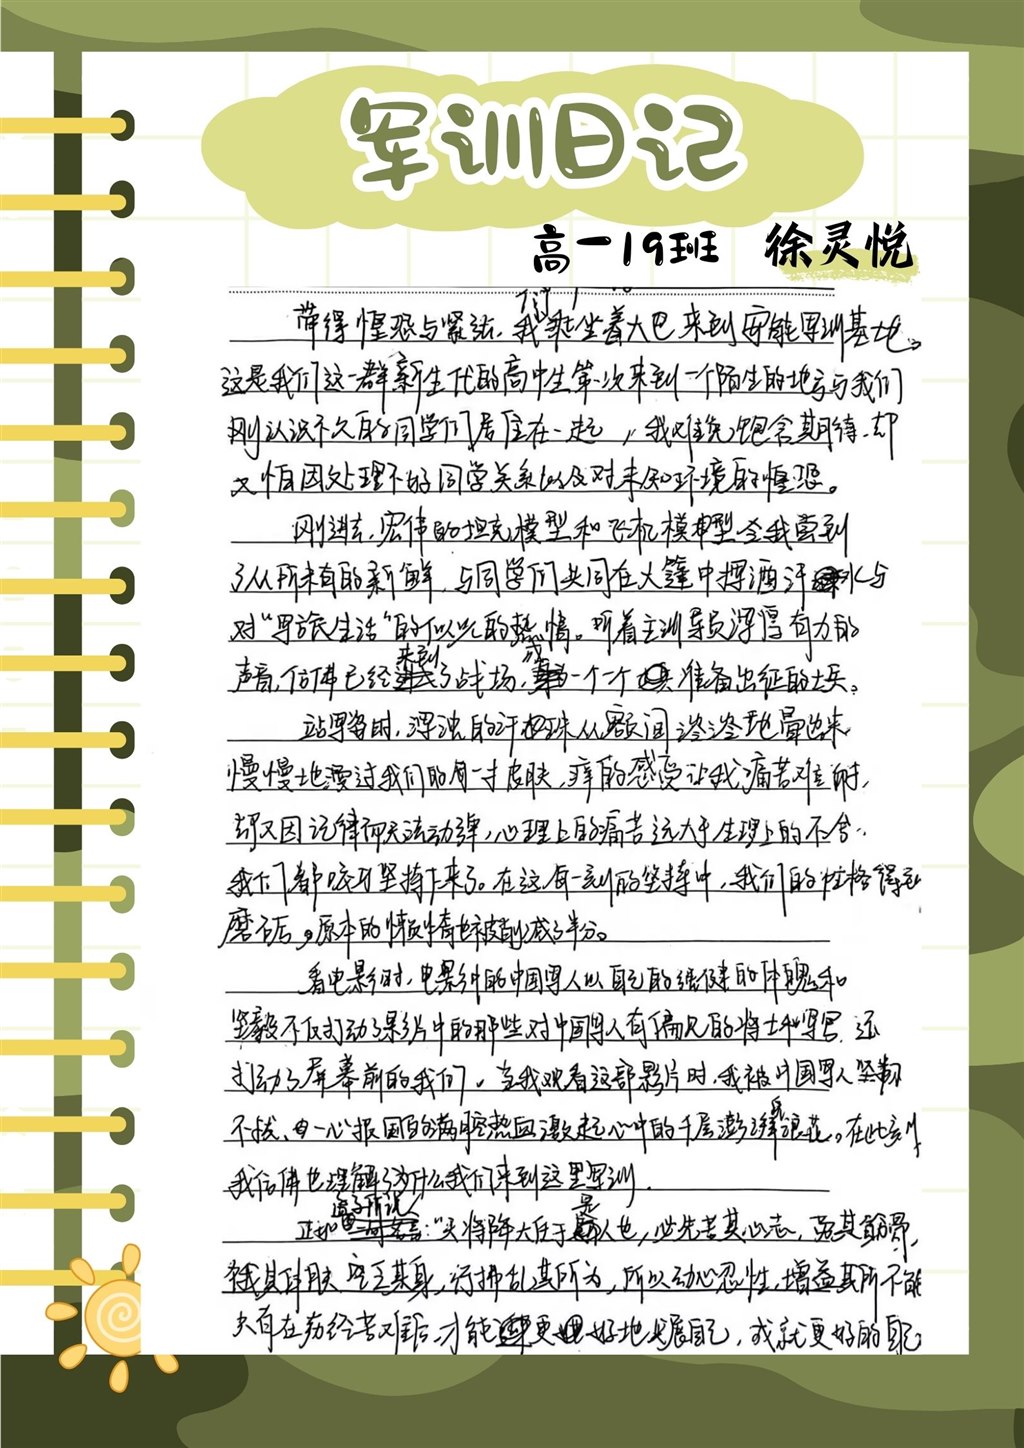 军训日记
高一19班 徐灵悦
带得惶恐与紧张，我乘坐着大巴来到安能军训基地。
这是我们这一群新生代的高中生第一次来到一个陌生的地方与我们
刚认识不久的同学们居住在一起，我难免饱含期待，却
又怕因处理不好同学关系以及对未知环境的惶恐。
刚进去，宏伟的坦克模型和飞机模型令我感到
了从所未有的新鲜，与同学们共同在大篷中挥洒汗水与
对“军旅生活”的似火的热情。听着主训导员浑厚有力的
声音，仿佛已经来到了战场，成一个一个准备出征的士兵。
站军姿时，浑浊的汗珠从额间冒出来
慢慢地漫过我们的每一寸皮肤，痒的感受让我痛苦难耐，
却又因记律而无法动弹，心理上的痛苦远大于生理上的不舍，
我们都咬牙坚持下来了。在这每一刻的坚持中，我们的性格得到
磨砺，原本的懒惰也被削减了半分。
看电影时，电影中的中国军人以自己的强健的体魄和
坚毅不仅打动了影片中的那些对中国军人有偏见的将士和军官，还
打动了屏幕前的我们。当我观看这部影片时，我被中国军人坚韧
不拔、一心报国的满腔热血激起心中的千层澎湃浪花。在此刻
我仿佛也理解了为什么我们来到这里军训。
正如孟子所说：“天将降大任于是人也，必先苦其心志，劳其筋骨，
饿其体肤，空乏其身，行拂乱其所为，所以动心忍性，增益其所不能
只有在历经苦难后，才能更好地发展自己，成就更好的自己